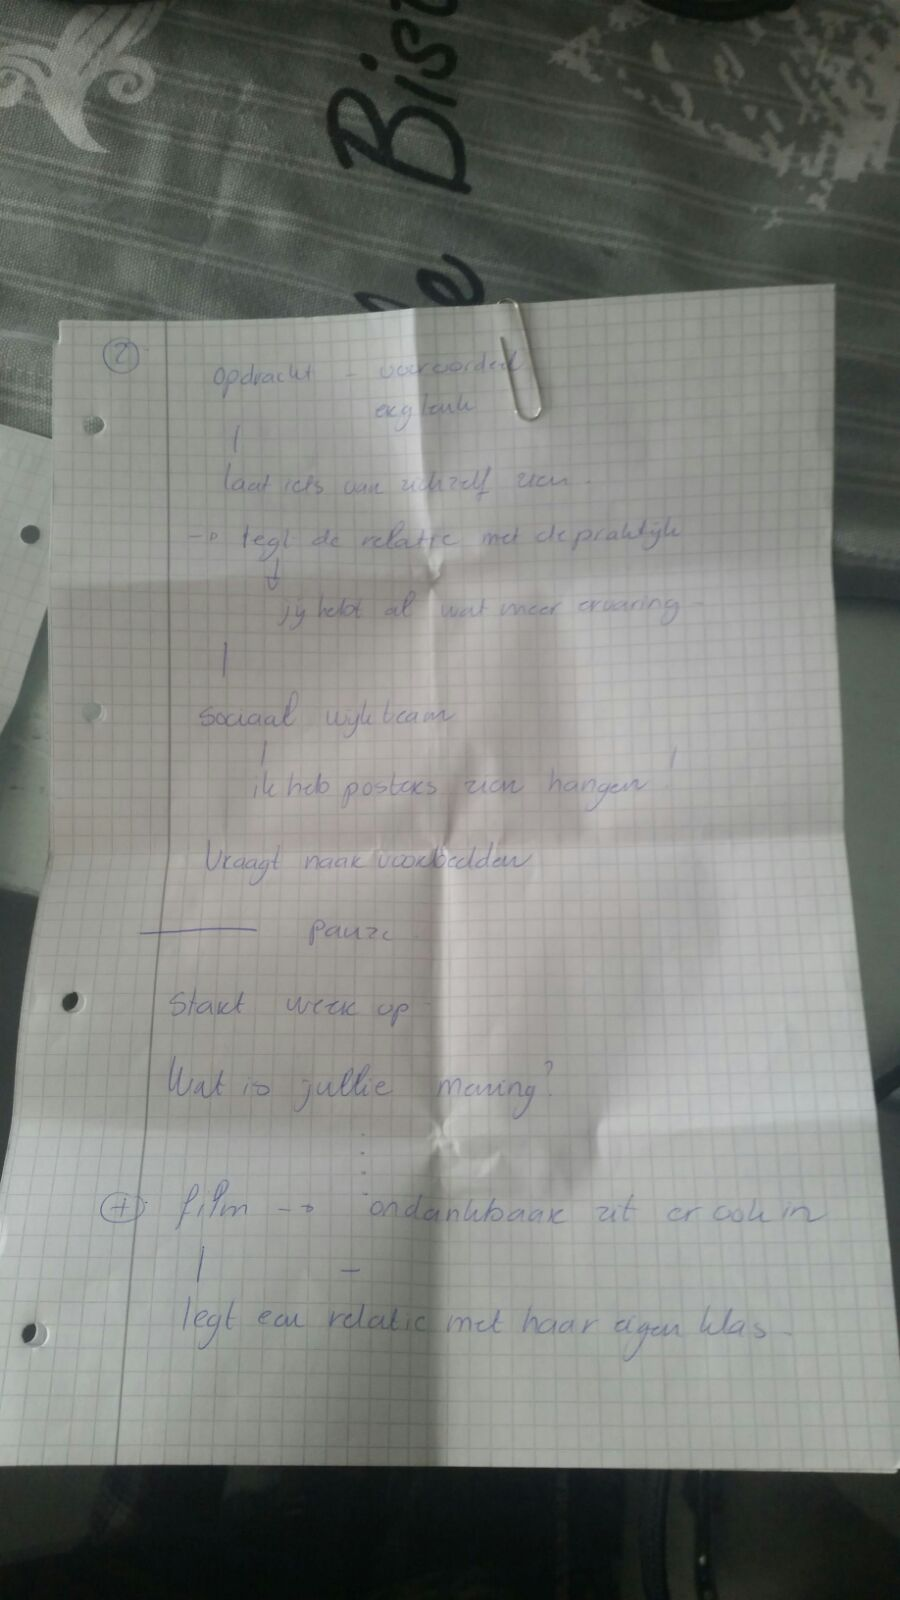 Bist
le
2
opdracht - vooroordeel
laat iets van zichzelf zien.
→ legt de relatie met de praktijk
↓
jij hebt al wat meer ervaring
sociaal wijkteam
ik heb posters zien hangen!
Vraagt naar voorbeelden
pauze
Start week op
Wat is jullie mening?
+ film → ondankbaar zit er ook in
legt een relatie met haar eigen klas.